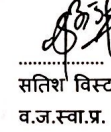 सतिश विस्ट
व.ज.स्वा.प्र.